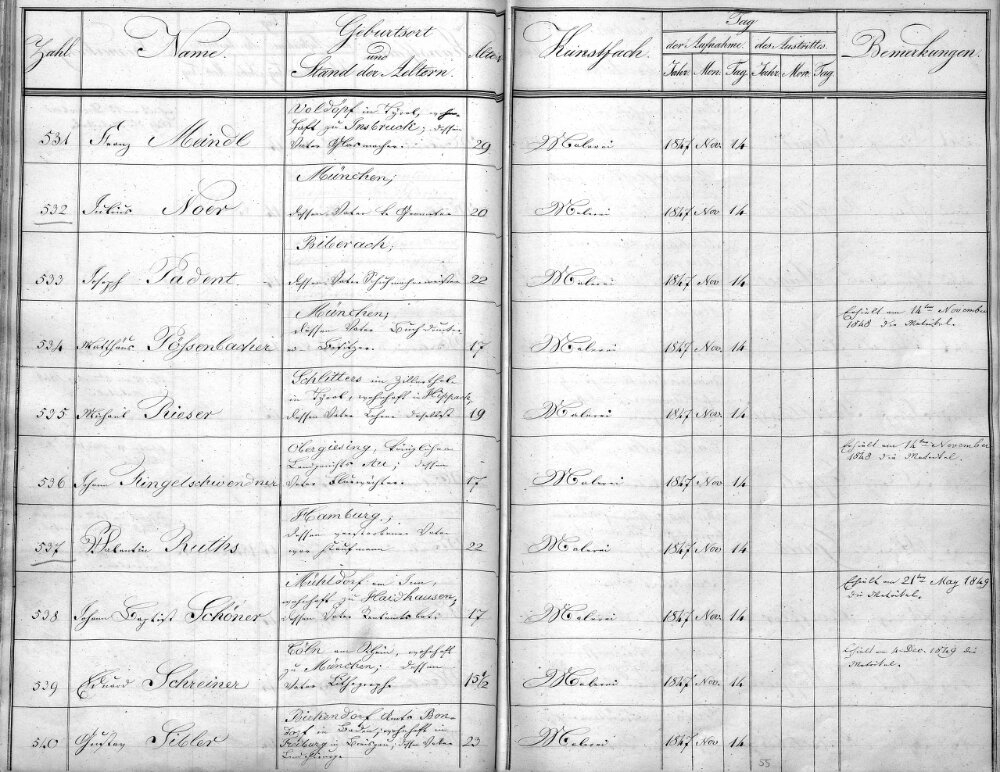 Zahl. Name. Geburtsort und Stand der Aeltern. Alter Kunstfach. Tag der Aufnahme. des Austrittes. Bemerkungen.
Jahr Mon. Tag Jahr Mon. Tag
Voldöpf in Tyrol, wohn-
haft zu Insbruck; dessen
531 Franz Meindl Vater Glasmacher. 29 Malerei 1847 Nov. 14
München;
532 Julius Noër dessen Vater k. Geometer 20 Malerei 1847 Nov 14
Biberach;
533 Joseph Padent. dessen Vater Schuhmachermeister 22 Malerei 1847 Nov. 14
München;
dessen Vater
534 Matthäus Pössenbacher Besitzer. 17 Malerei 1847 Nov. 14
Erhält am 14ten November
1848 die Matrikel.
Schlitters im Zillerthale
in Tyrol, wohnhaft in
535 Michael Rieser dessen Vater Lehrer daselbst 19 Malerei 1847 Nov. 14
Obergiesing, königlichen
Landgerichts Au; dessen
536 Johann Ringelschwendner Vater 17 Malerei 1847 Nov. 14
Erhält am 14ten November
1848 die Matrikel.
Hamburg;
dessen verstorbener Vater
537 Valentin Ruths war Kaufmann 22 Malerei 1847 Nov 14
Mühldorf am Inn,
wohnhaft zu Haidhausen;
538 Johann Baptist Schöner dessen Vater 17 Malerei 1847 Nov. 14
Erhält am 21ten May 1849
die Matrikel.
Cöln am Rhein, wohnhaft
zu München; dessen
539 Eduard Schreiner Vater Lithographe 15 1/2 Malerei 1847 Nov. 14
Erhält am 4. Dec. 1849 die
Matrikel.
Amts Bon-
dorf in Baden, wohnhaft in
Freiburg in Breisgau, dessen Vater
540 Gustav Sibler 23 Malerei 1847 Nov 14
55